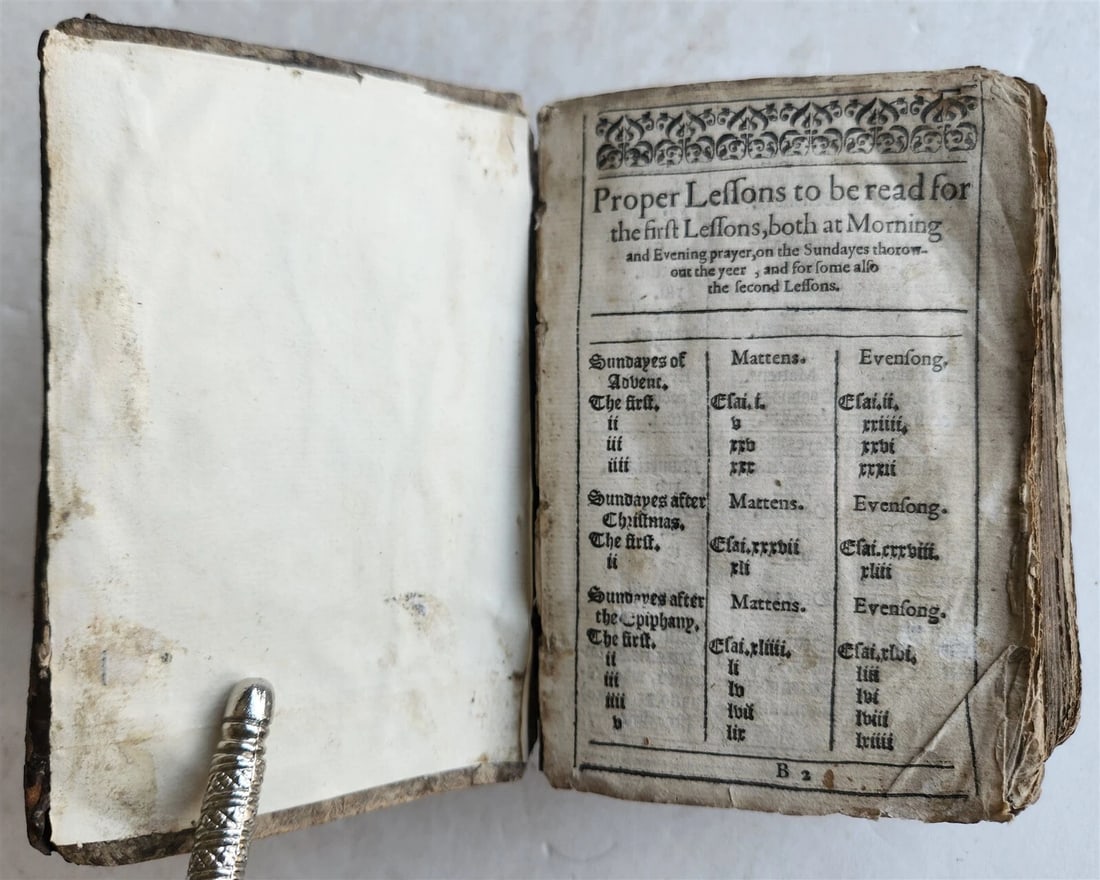 Proper Leſſons to be read for
the firſt Leſſons, both at Morning
and Evening prayer, on the Sundayes thorow-
out the yeer , and for ſome alſo
the ſecond Leſſons.
Sundayes of Mattens. Evenſong.
Advent.
The firſt. Eſai.i. Eſai.ii.
ii v xxiiii.
iii xxv xxvi
iiii xxx xxxii
Sundayes after Mattens. Evenſong.
Chriſtmas.
The firſt. Eſai.xxxvii Eſai.xxxviii.
ii xli xliii
Sundayes after Mattens. Evenſong.
the Epiphany.
The firſt. Eſai.xliiii. Eſai.xlvi.
ii li liii
iii lv lvi
iiii lvii lviii
v lix lxiiii
B 2